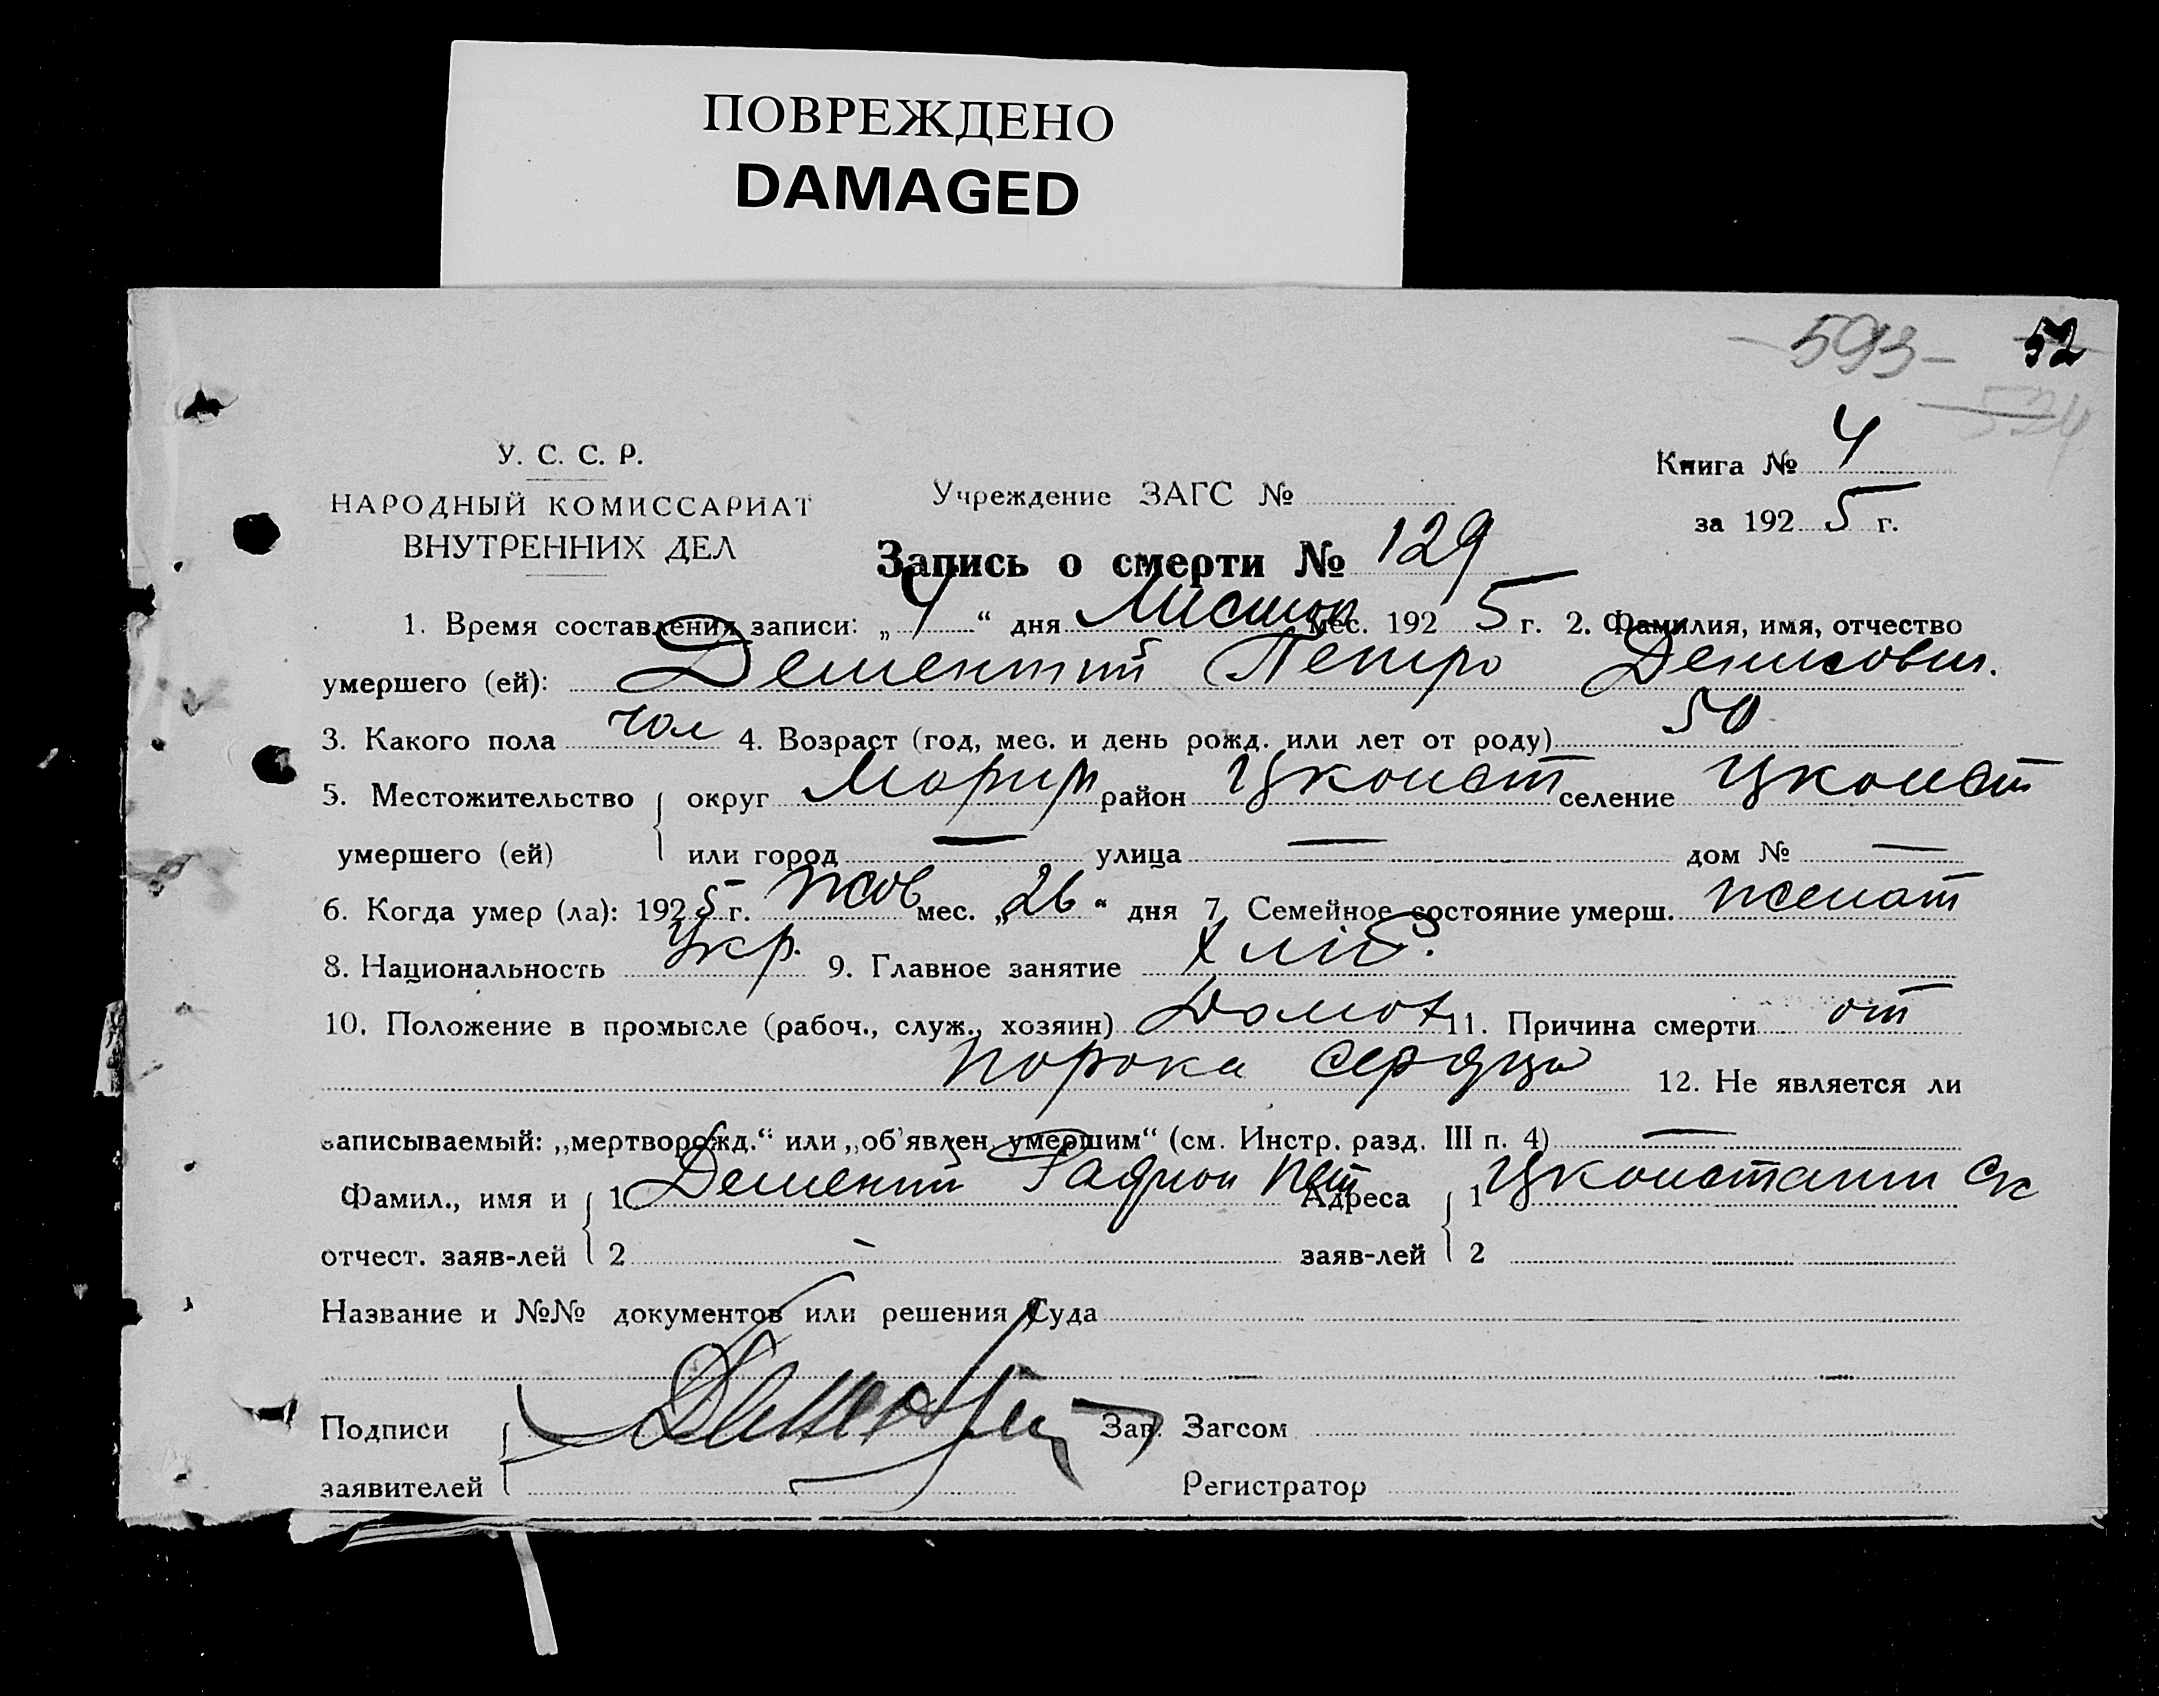 ПОВРЕЖДЕНО
DAMAGED
593- 52
524
У. С. С. Р.
НАРОДНЫЙ КОМИССАРИАТ
ВНУТРЕННИХ ДЕЛ
Учреждение ЗАГС №
Книга № 4
за 1925 г.
Запись о смерти № 129
1. Время составления записи: „4“ дня Листоп мес. 1925 г. 2. Фамилия, имя, отчество
умершего (ей): Дементий Петро Денисович.
3. Какого пола чол 4. Возраст (год, мес. и день рожд. или лет от роду) 50
5. Местожительство округ Маріуп район Цконст селение Цконст
умершего (ей) или город — улица — дом № —
6. Когда умер (ла): 1925 г. Жов мес. „26“ дня 7. Семейное состояние умерш. женат
8. Национальность Укр. 9. Главное занятие Хліб.
10. Положение в промысле (рабоч., служ., хозяин) Домох 11. Причина смерти от
порока сердца 12. Не является ли
записываемый: „мертворожд.“ или „об'явлен. умершим“ (см. Инстр. разд. III п. 4) —
Фамил., имя и 1 Дементий Радион Пет Адреса 1 Цконстант
отчест. заяв-лей 2 - заяв-лей 2
Название и №№ документов или решения Суда
Подписи Зав. Загсом
заявителей Регистратор